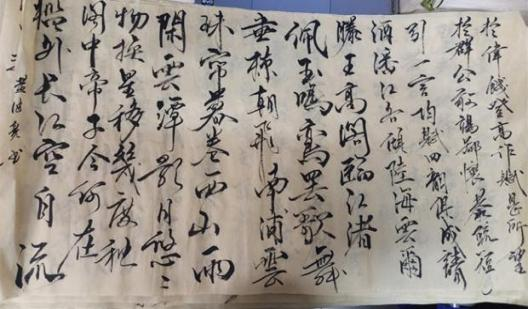 於偉餞登高作賦是所望
於群公敢竭鄙懷恭疏短
引一言均賦四韻俱成請
灑潘江各傾陸海雲爾
滕王高閣臨江渚
佩玉鳴鸞罷歌舞
畫棟朝飛南浦雲
珠帘暮卷西山雨
閑雲潭影日悠〻
物換星移幾度秋
閣中帝子今何在
檻外長江空自流
書